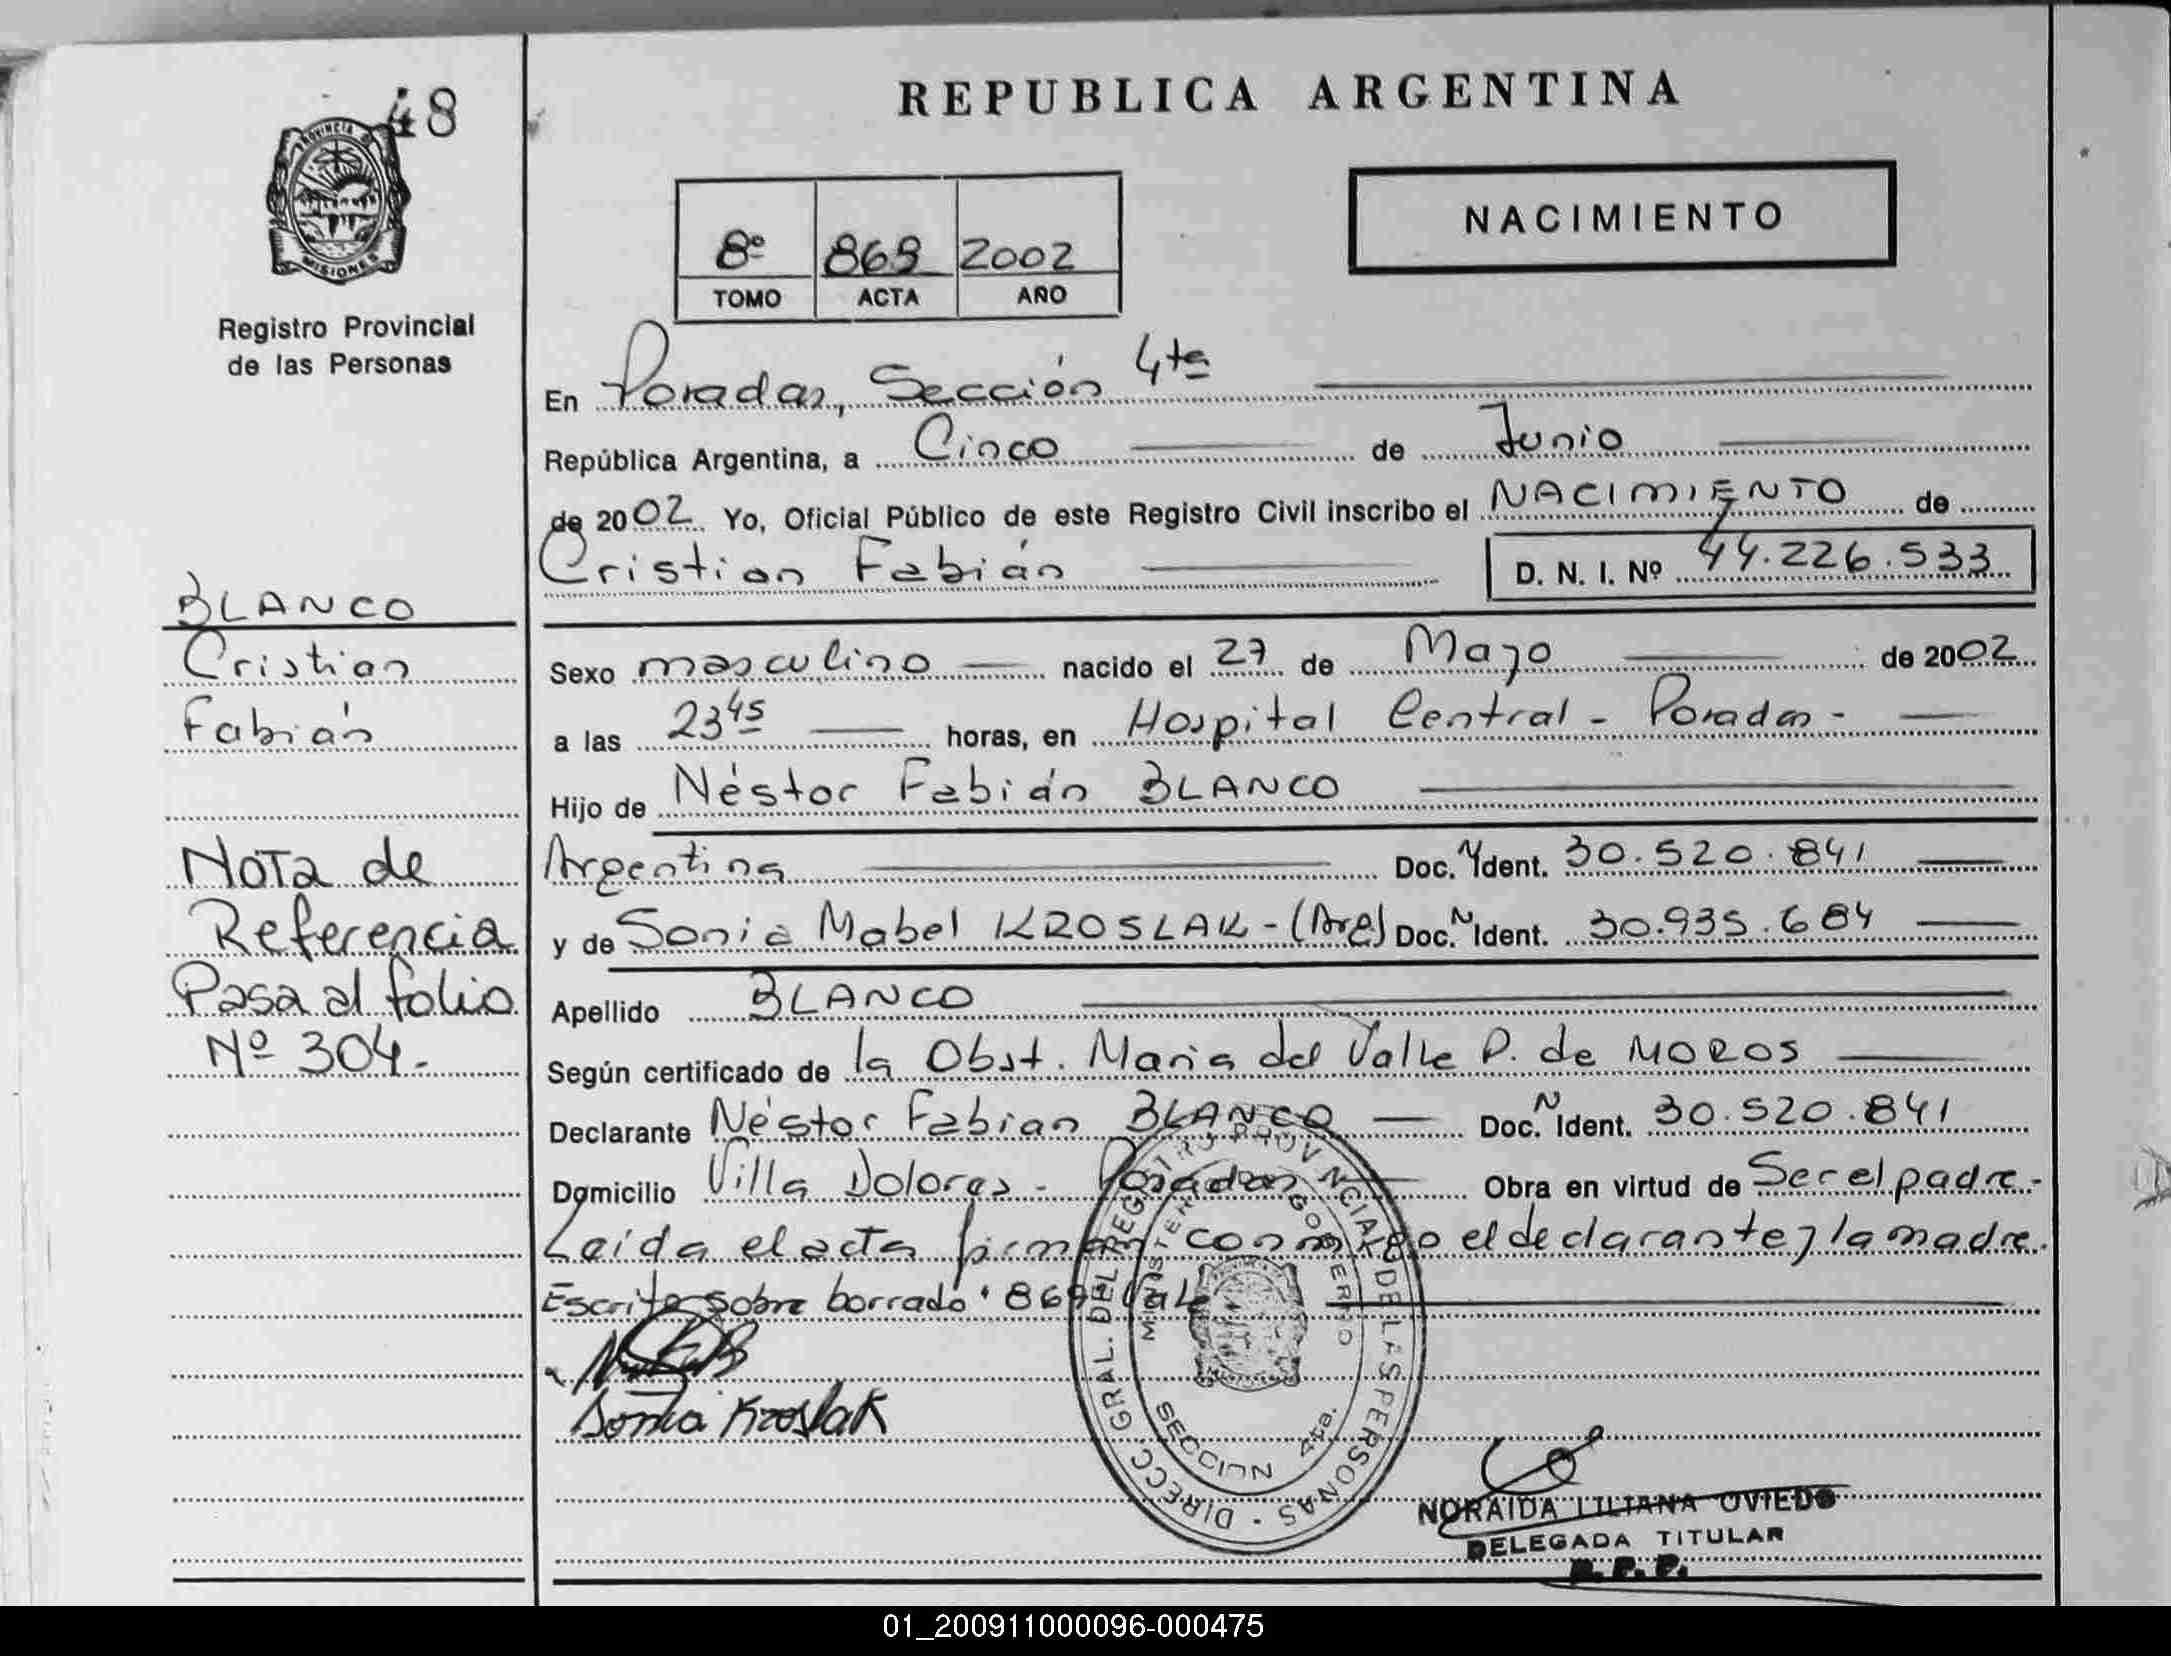 48
PROVINCIA DE
MISIONES
Registro Provincial
de las Personas
REPUBLICA ARGENTINA
NACIMIENTO
8º 869 2002
TOMO ACTA AÑO
En Posadas, Sección 4ta
República Argentina, a Cinco de Junio
de 2002 Yo, Oficial Público de este Registro Civil inscribo el NACIMIENTO de
Cristian Fabián D. N. I. Nº 44.226.533
BLANCO
Cristian
Fabián
Nota de
Referencia
Pasa al folio
Nº 304.-
Sexo masculino nacido el 27 de Mayo de 2002
a las 23 45 horas, en Hospital Central - Posadas -
Hijo de Néstor Fabián BLANCO
Argentina Doc. N Ident. 30.520.841
y de Sonia Mabel KROSLAK - (Arg) Doc. N Ident. 30.935.684
Apellido BLANCO
Según certificado de la Obst. Maria del Valle P. de MOROS
Declarante Néstor Fabian BLANCO Doc. N Ident. 30.520.841
Domicilio Villa Dolores - Posadas Obra en virtud de Ser el padre.-
Leída el acta firman conmigo el declarante y la madre.
Escrito sobre borrado "869" Vale
Sonia Kroslak
DIRECC. GRAL. DEL REGISTRO PROVINCIAL DE LAS PERSONAS -
MINISTERIO GOBIERNO
SECCION 4ta.
NORAIDA LILIANA OVIEDO
DELEGADA TITULAR
R. P. P.
01_200911000096-000475